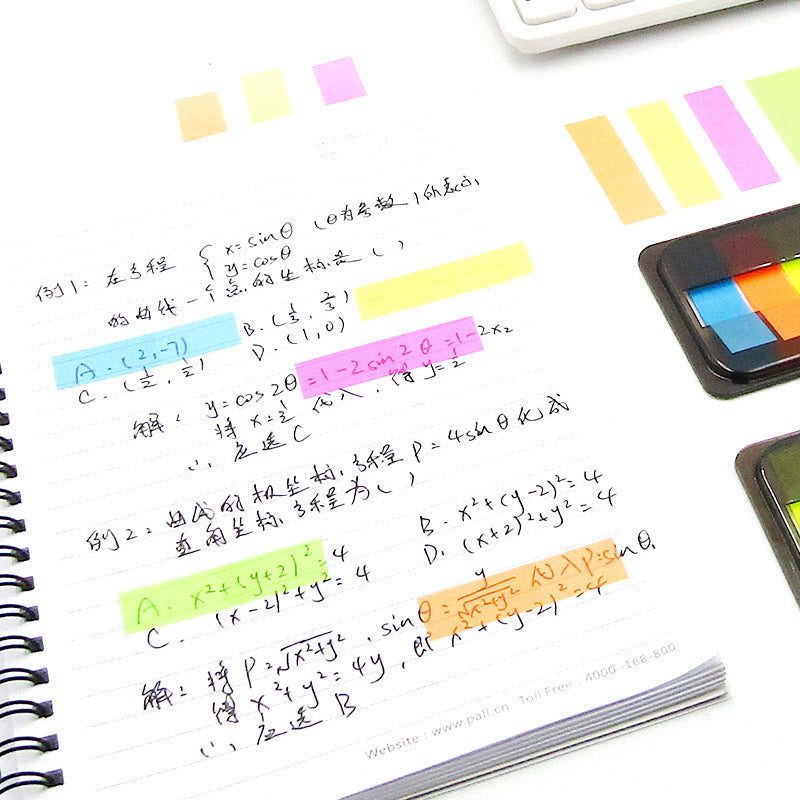 例1:在方程 { x=sinθ (θ为参数)所表示
y=cosθ
的曲线一个点的坐标是( )
A.(2,-7) B.(1/3, 2/3)
C.(1/2, 1/2) D.(1,0)
解: y=cos2θ=1-2sin2θ=1-2x2
将 x=1/2 代入,得 y=1/2
∴应选C
例2:曲线的极坐标方程 P=4sinθ化成
直角坐标方程为( )
B. x²+(y-2)²=4
A. x²+(y+2)²=4 D. (x+2)²+y²=4
C. (x-2)²+y²=4
解:将 P=√x²+y², sinθ=y/√x²+y² 代入P=sinθ,
得 x²+y²=4y,即 x²+(y-2)²=4
∴应选B
Website:www.pall.cn Toll Free 4000-168-800